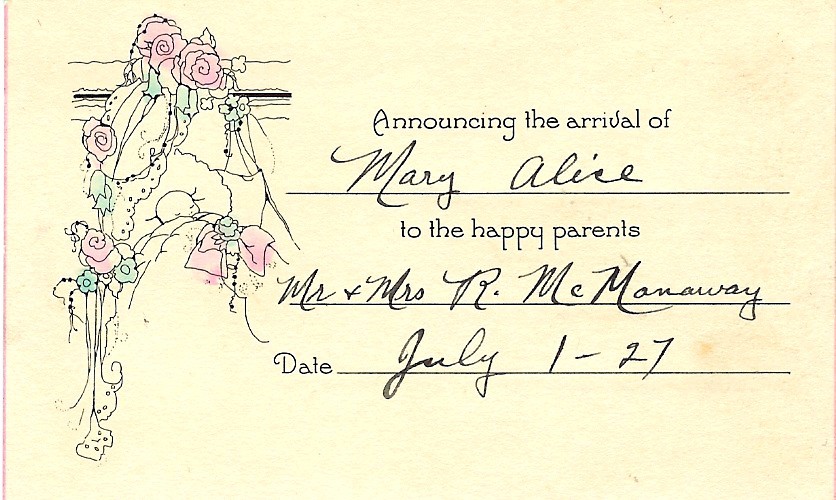 Announcing the arrival of
Mary Alice
to the happy parents
Mr & Mrs R. McManaway
Date July 1-27